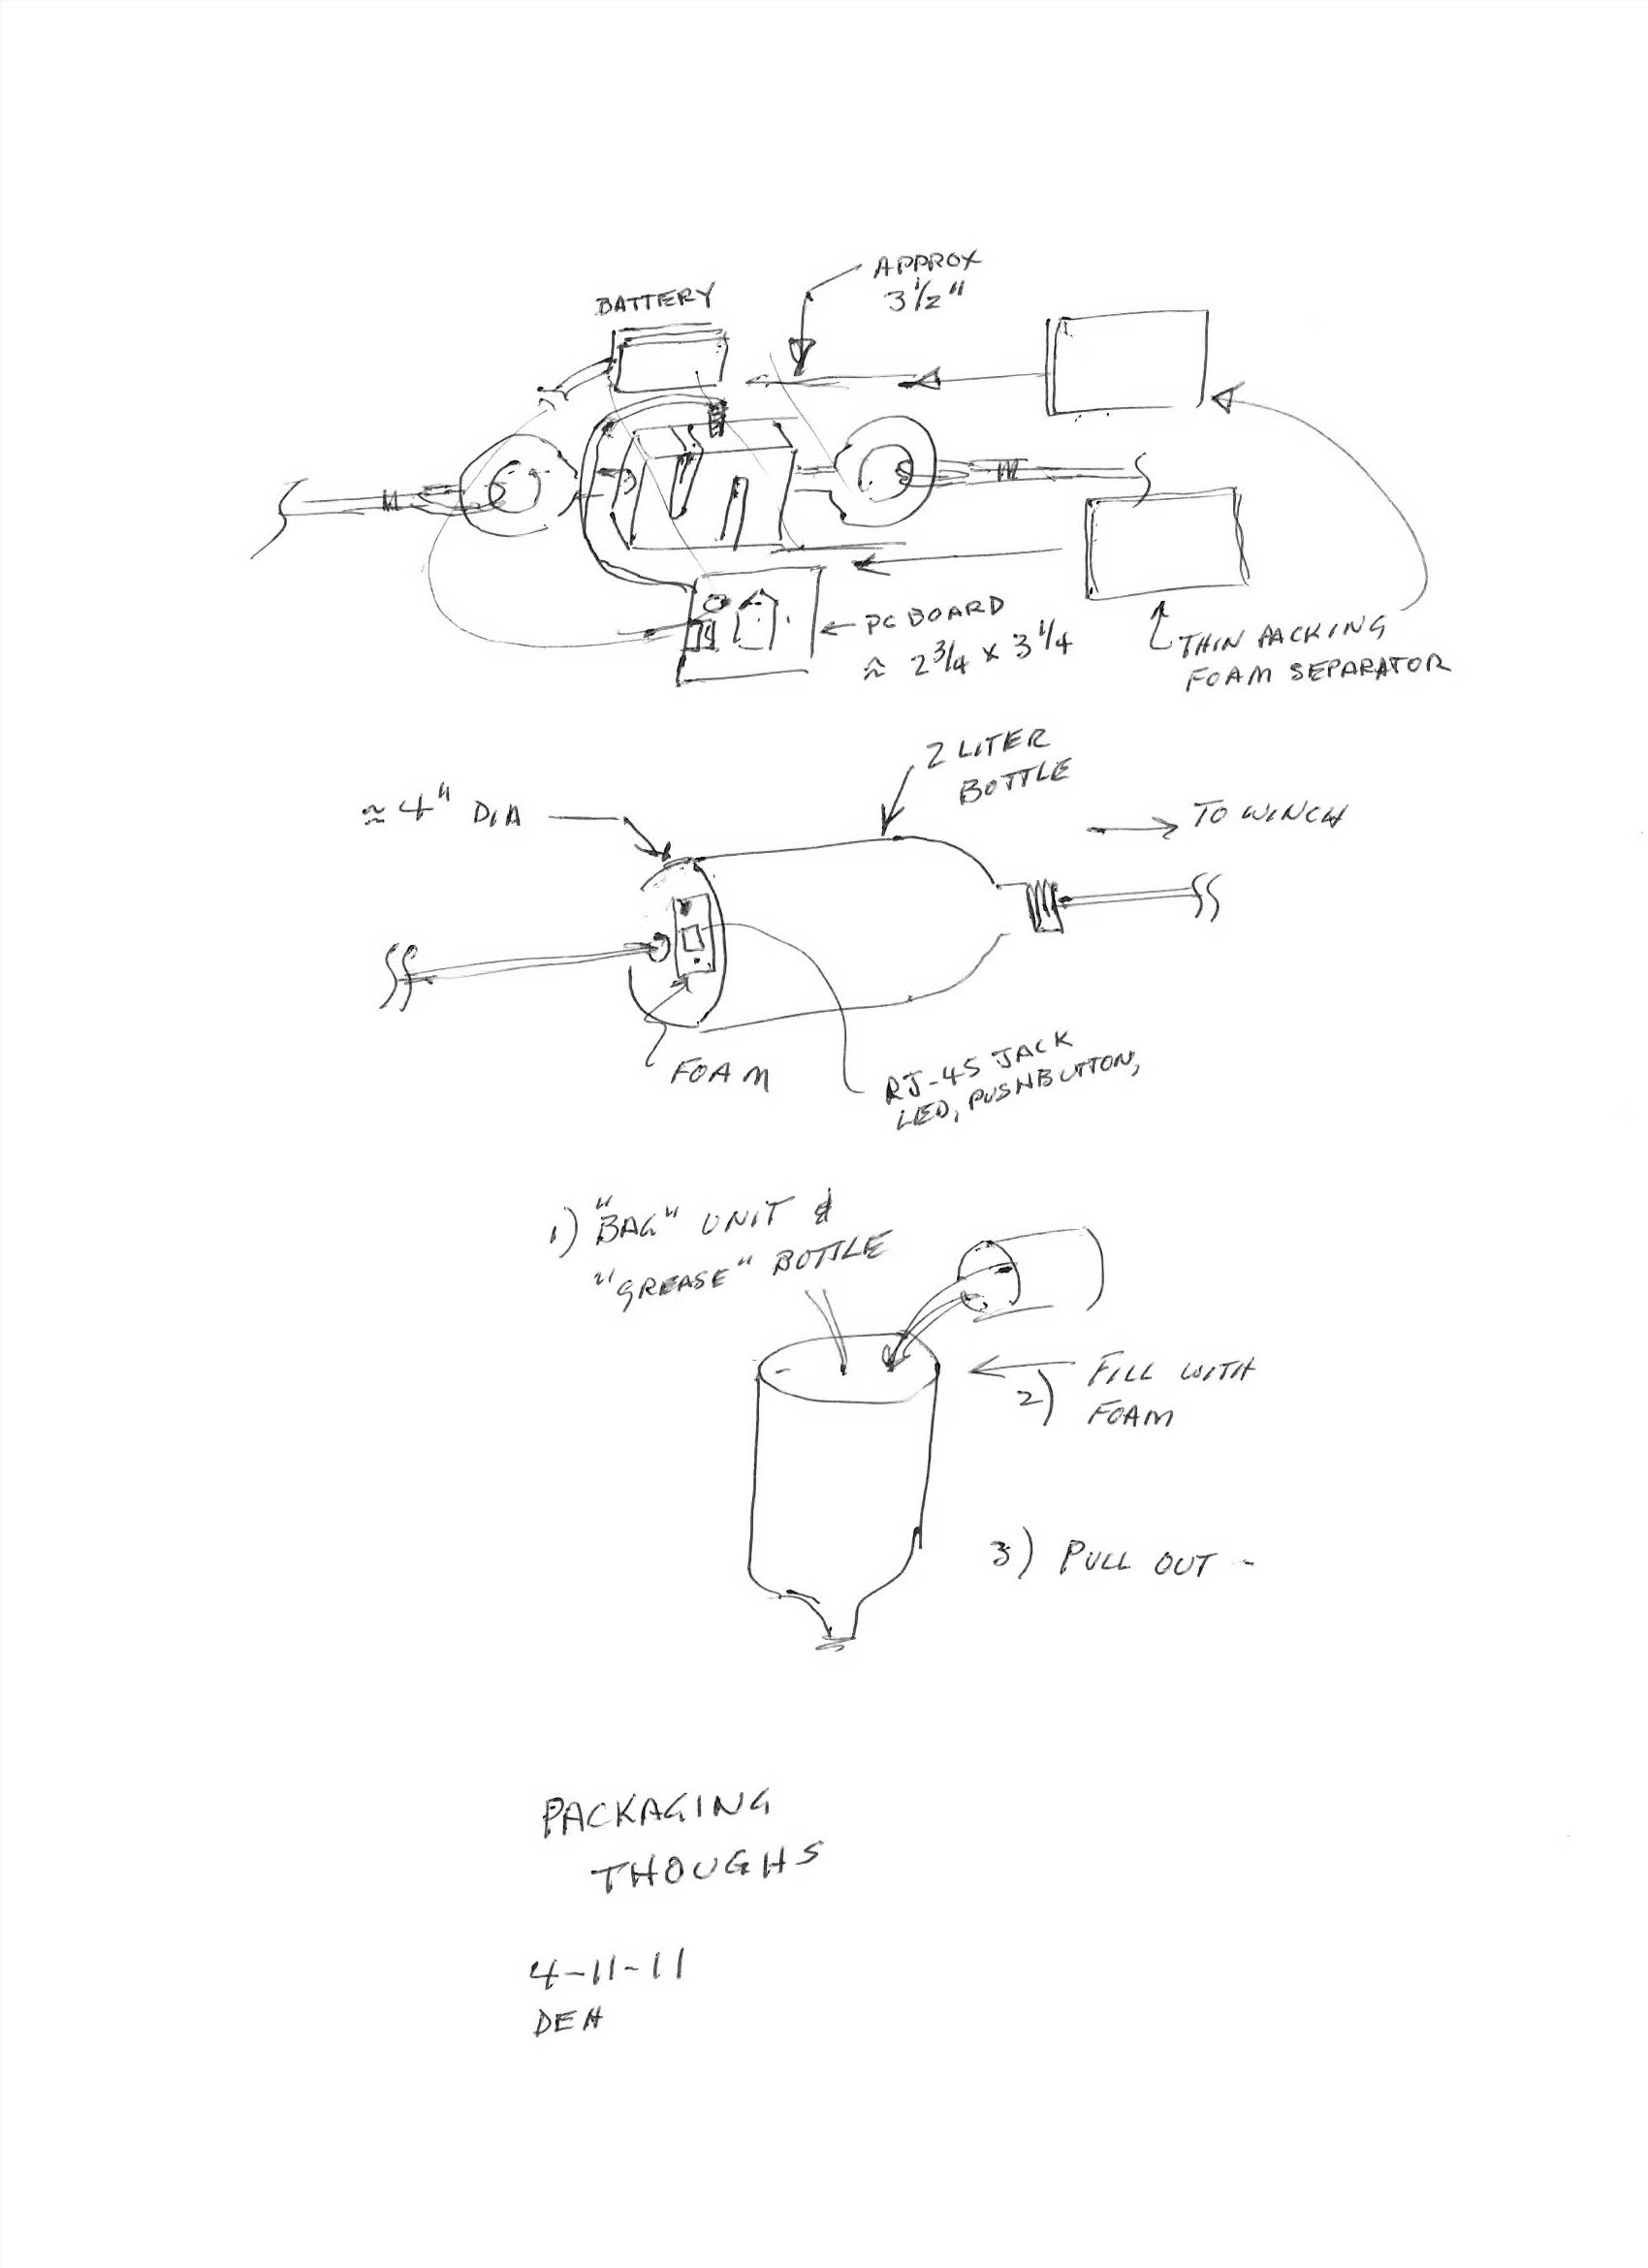 APPROX
3 1/2"
BATTERY
← PC BOARD
≈ 2 3/4 x 3 1/4
THIN PACKING
FOAM SEPARATOR
2 LITER
BOTTLE
≈ 4" DIA
→ TO WINCH
FOAM
RJ-45 JACK
LED, PUSHBUTTON,
1) "BAG" UNIT &
"GREASE" BOTTLE
2) FILL WITH
FOAM
3) PULL OUT -
PACKAGING
THOUGHS
4-11-11
DEH